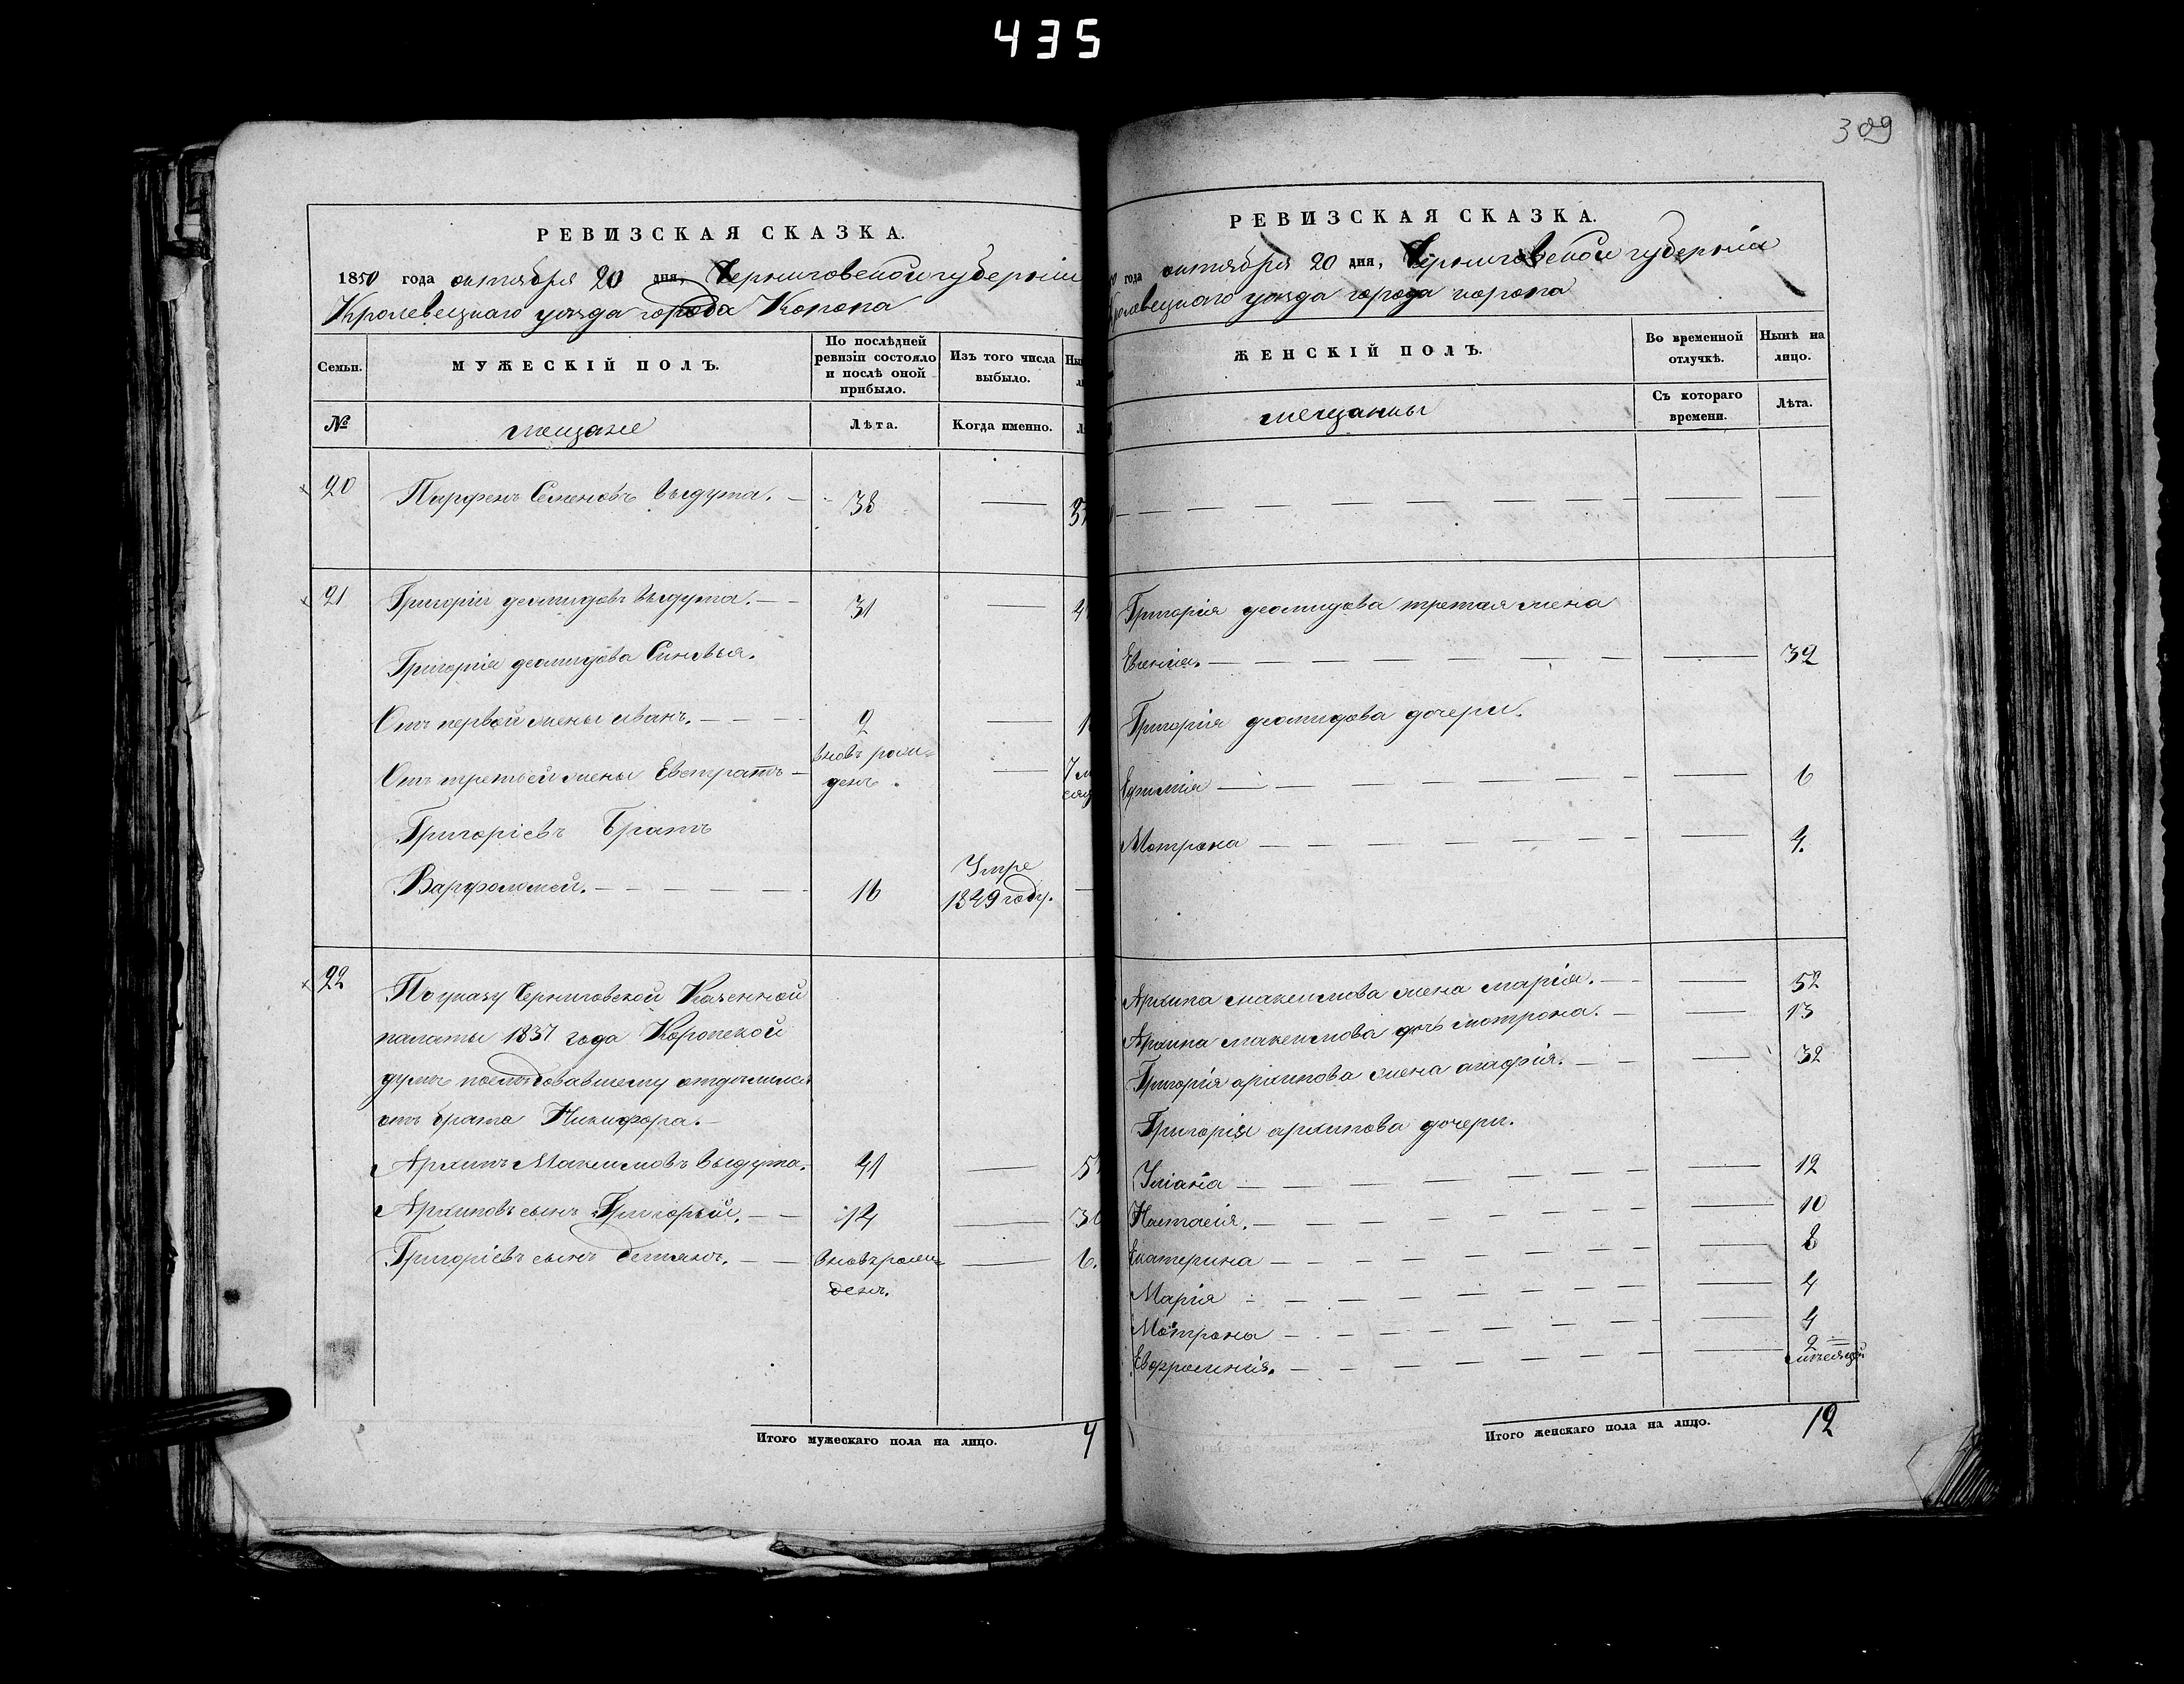 435
309
РЕВИЗСКАЯ СКАЗКА.
1850 года октября 20 дня, Черниговской губерніи
Кролевецкаго уѣзда города Коропа
Семьи.
МУЖЕСКІЙ ПОЛЪ.
По послѣдней ревизіи состояло и послѣ оной прибыло.
Изъ того числа выбыло.
№
мещане
Лѣта.
Когда именно.
20 Парфенъ Семеновъ Выдута. 38
21 Григорій демидовъ Выдута. 31
Григорія демидова Синовья.
Отъ первой жены иванъ. 2
Отъ третьей жены Евстратъ вновь рожденъ. 7 м
Григоріевъ Братъ
Варфоломей. 16 Умре 1849 году.
22 По указу Черниговской Казенной
палаты 1837 года Коропской
думѣ последовавшему отделился
отъ брата Никифора.
Архипъ Максимовъ Выдута. 41
Архиповъ сынъ Григорій. 14
Григоріевъ сынъ демянъ. вновь рожденъ. 6.
Итого мужескаго пола на лицо.
РЕВИЗСКАЯ СКАЗКА.
года октября 20 дня, Черниговской губерніи
Кролевецкаго уѣзда города коропа
ЖЕНСКІЙ ПОЛЪ.
Во временной отлучкѣ.
Нынѣ на лицо.
мещанки
Съ котораго времени.
Лѣта.
Григорія демидова третая жена
Евгенія. 32
Григорія демидова дочери.
Ефимія 6
Мотрона 4.
Архипа максимова жена марія. 52
Архипа максимова дочь мотрона. 13
Григорія архипова жена агафія. 32
Григорія архипова дочери.
Уліана 12
Настасія. 10
Екатерина 8
Марія 4
Мотрона 4
Евфросинія. 2 месяцей
Итого женскаго пола на лицо. 12